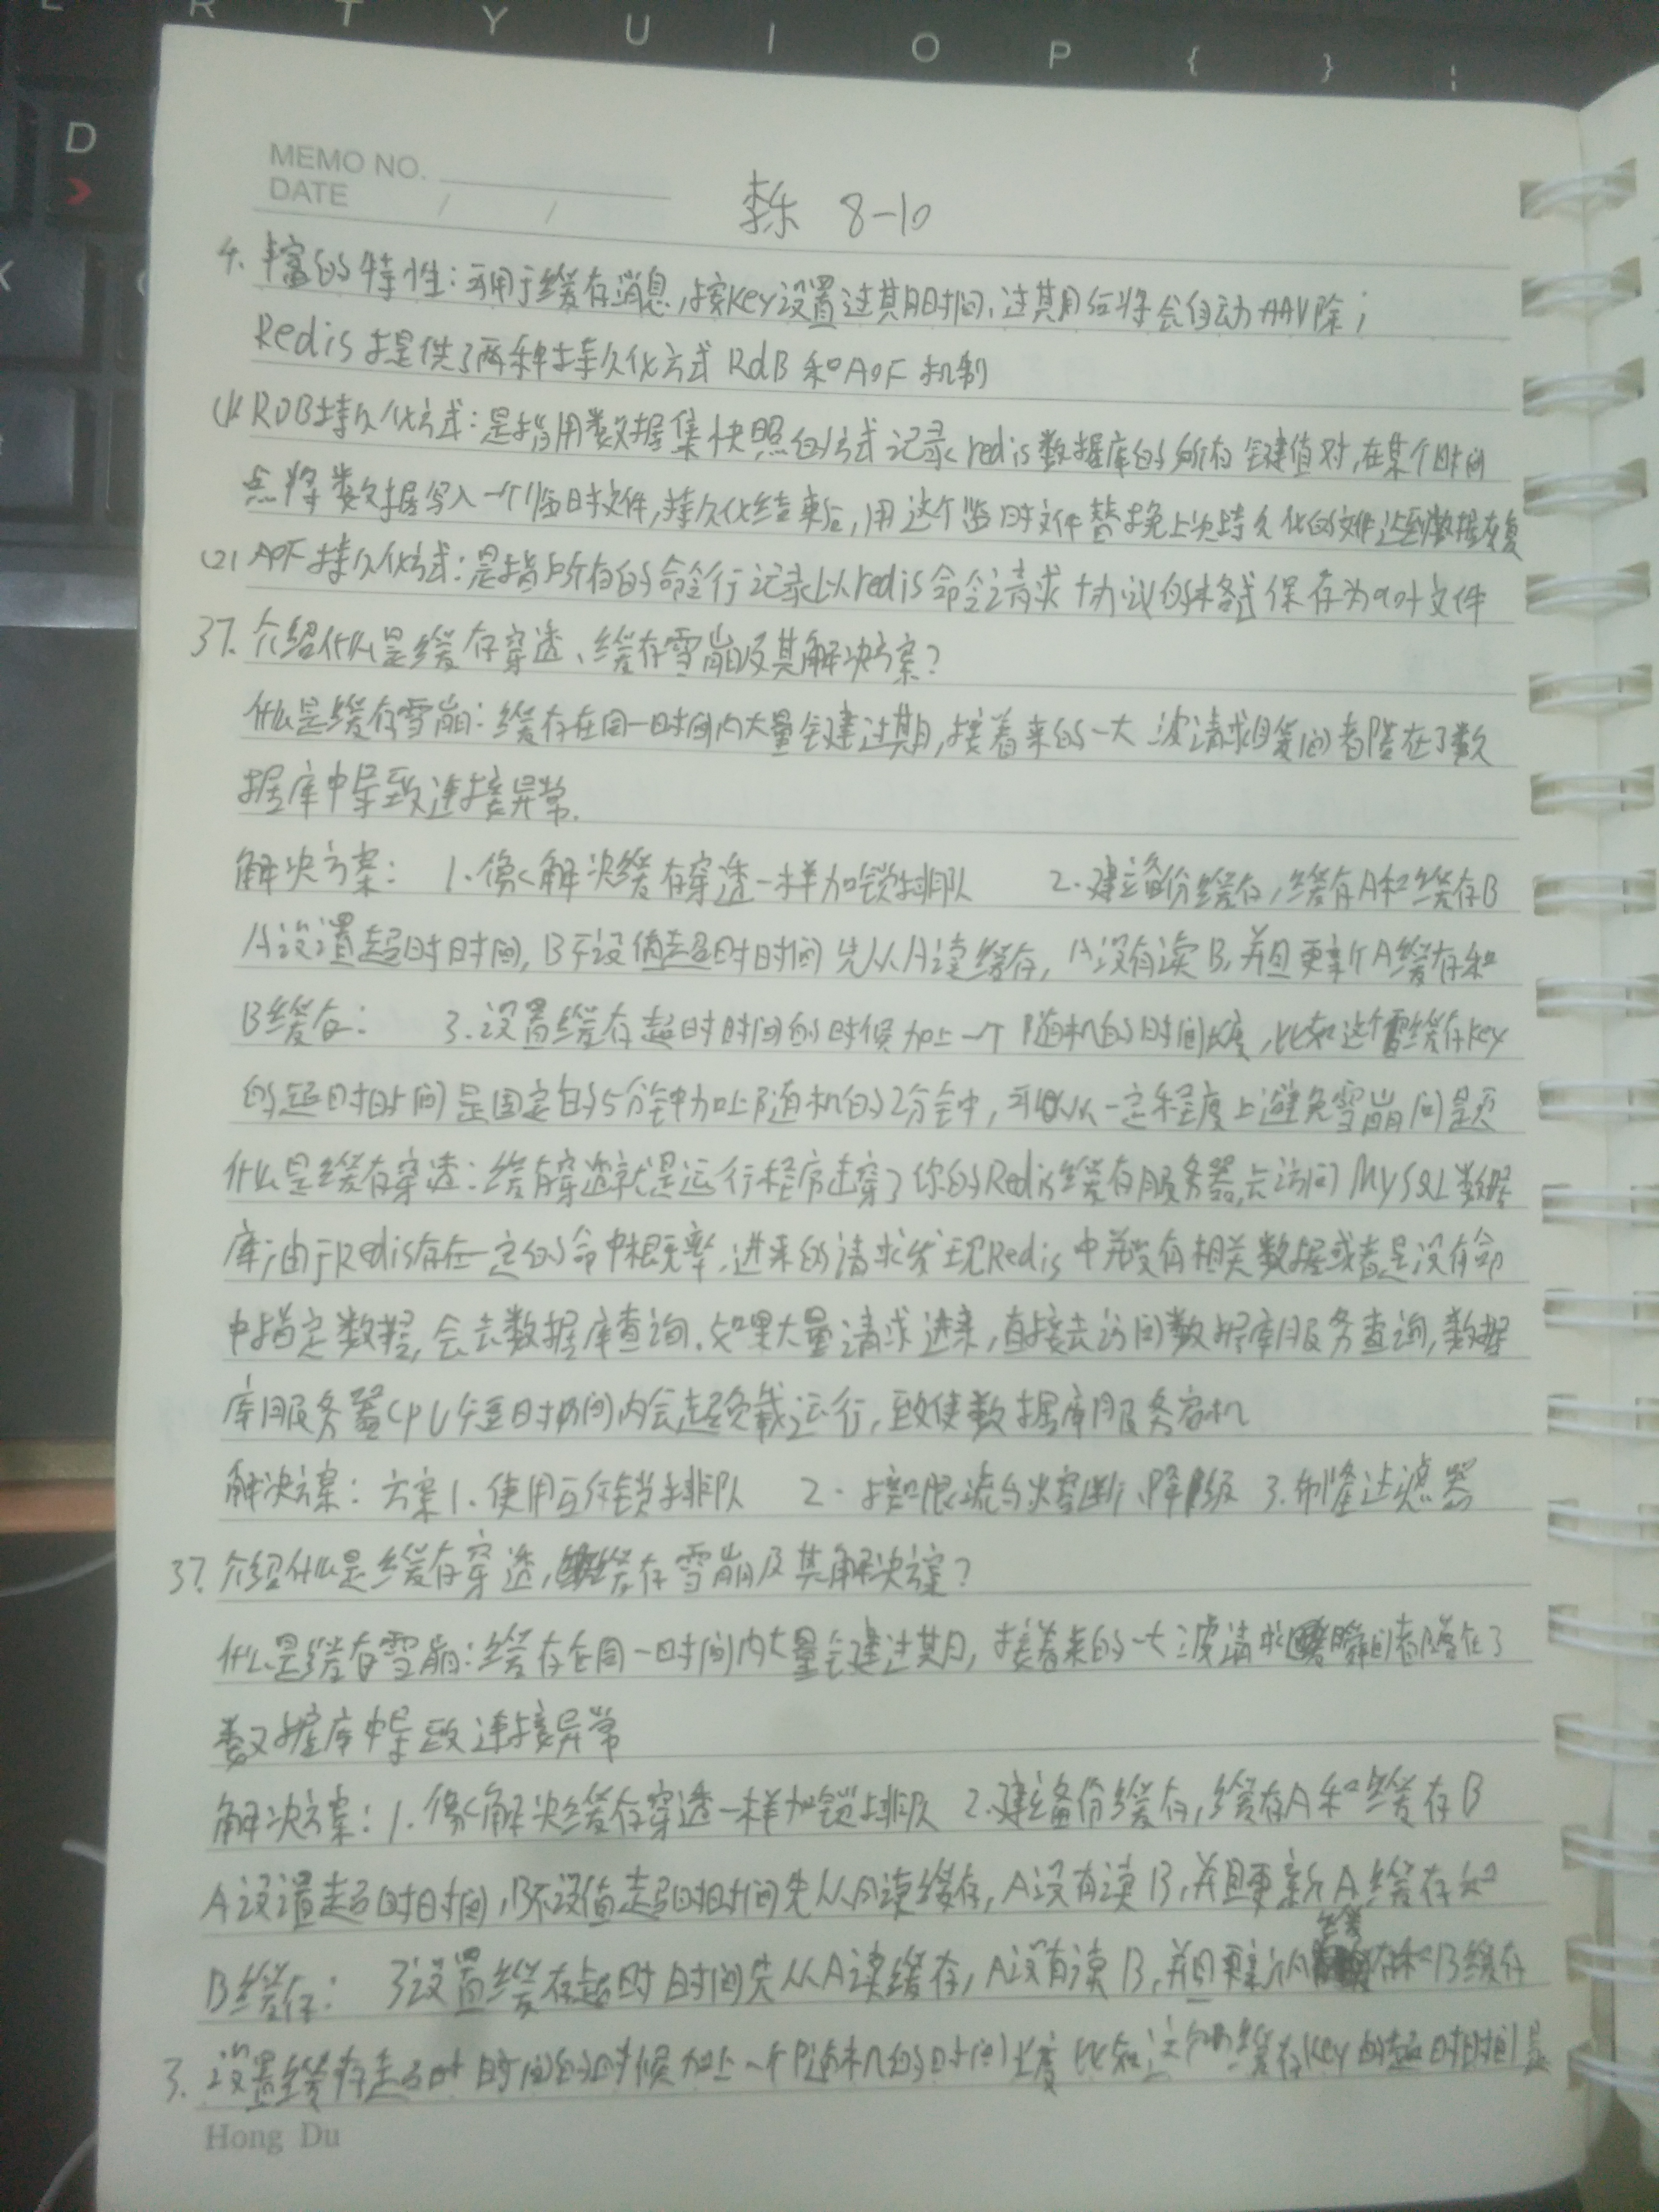 R T Y U I O P { } ;
D
MEMO NO.
DATE / /
8-10
4. 丰富的特性:可用于缓存消息,按key设置过期时间,过期后将会自动删除;
Redis提供了两种持久化方式 RdB 和AOF 机制
(1) RDB持久化方式:是指用数据集快照的方式记录redis数据库的所有键值对,在某个时间
点将数据写入一个临时文件,持久化结束后,用这个临时文件替换上次持久化的文件达到数据恢复
(2) AOF持久化方式:是指所有的命令行记录以redis命令请求协议的格式保存为aof文件
37. 介绍什么是缓存穿透、缓存雪崩及其解决方案?
什么是缓存雪崩:缓存在同一时间内大量键过期,接着来的一大波请求瞬间都落在了数
据库中导致连接异常.
解决方案: 1.像解决缓存穿透一样加锁排队 2.建立备份缓存,缓存A和缓存B
A设置超时时间,B不设值超时时间 先从A读缓存,A没有读B,并且更新A缓存和
B缓存: 3.设置缓存超时时间的时候加上一个随机的时间长度,比如这个缓存key
的超时时间是固定的5分钟加上随机的2分钟,可以从一定程度上避免雪崩问题
什么是缓存穿透:缓存穿透就是运行程序走穿了你的Redis缓存服务器,去访问MySQL数据
库;由于Redis存在一定的命中概率,进来的请求发现Redis中并没有相关数据或者是没有命
中指定数据,会去数据库查询.如果大量请求进来,直接去访问数据库服务查询,数据
库服务器CPU短时间内会超负载运行,致使数据库服务宕机
解决方案:方案1.使用互斥锁排队 2.接口限流与熔断、降级 3.布隆过滤器
37. 介绍什么是缓存穿透,缓存雪崩及其解决方案?
什么是缓存雪崩:缓存在同一时间内大量键过期,接着来的一大波请求瞬间都落在了
数据库中导致连接异常
解决方案:1.像解决缓存穿透一样加锁排队 2.建立备份缓存,缓存A和缓存B
A设置超时时间,B不设值超时时间先从A读缓存,A没有读B,并且更新A缓存和
B缓存: 3设置缓存超时时间先从A读缓存,A没有读B,并且更新A缓存和B缓存
3. 设置缓存超时时间的时候加上一个随机的时间长度 比如这个缓存key的超时时间是
Hong Du